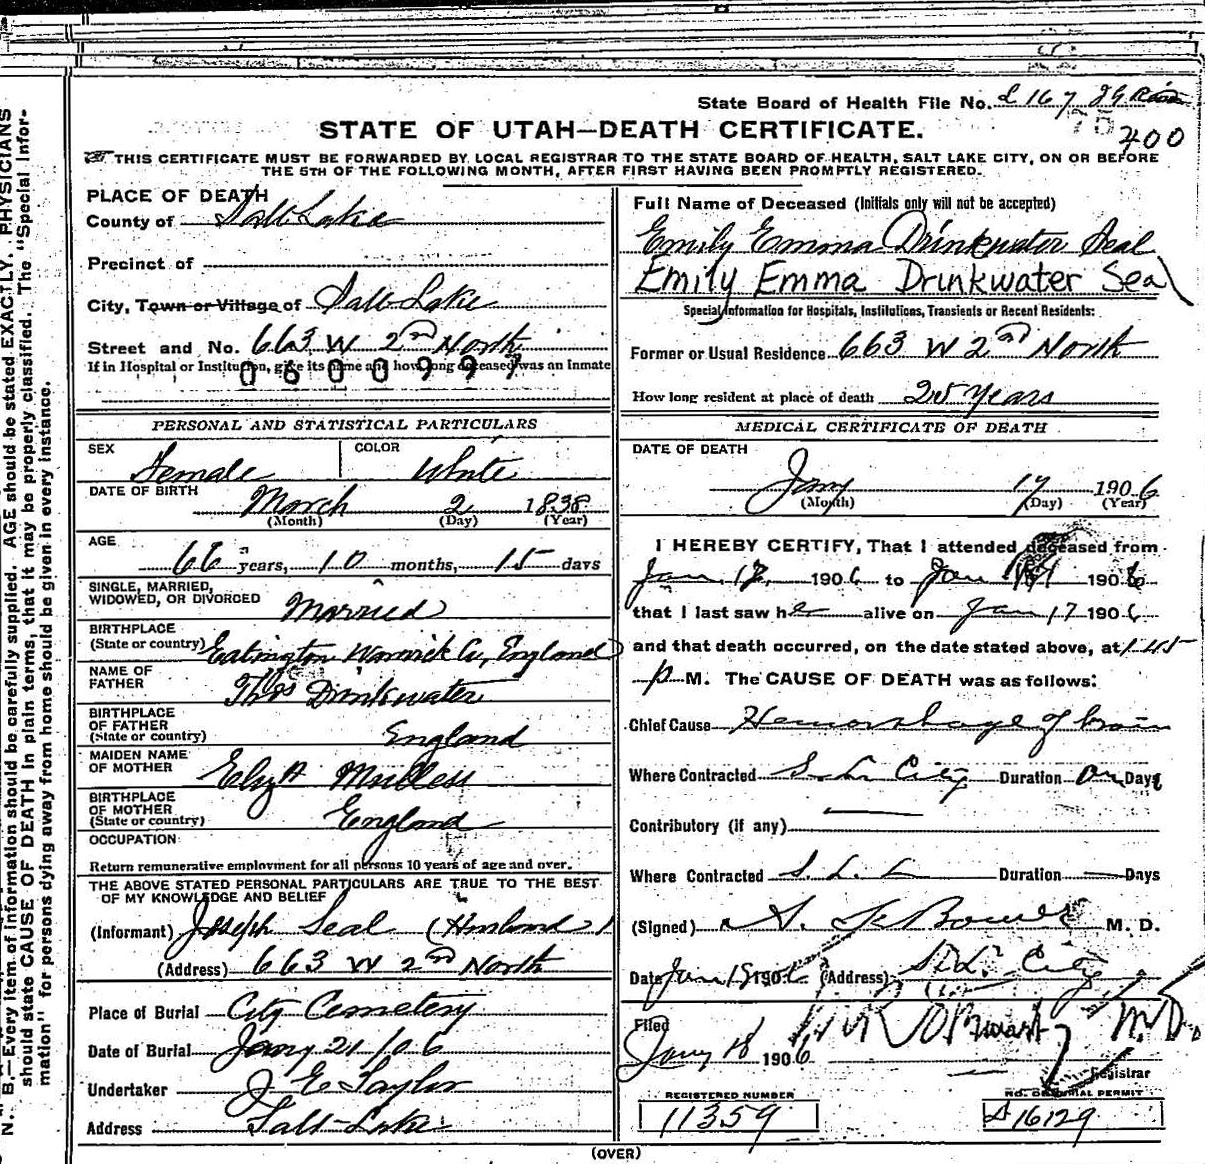 State Board of Health File No. L 167
400
STATE OF UTAH—DEATH CERTIFICATE.
THIS CERTIFICATE MUST BE FORWARDED BY LOCAL REGISTRAR TO THE STATE BOARD OF HEALTH, SALT LAKE CITY, ON OR BEFORE
THE 5TH OF THE FOLLOWING MONTH, AFTER FIRST HAVING BEEN PROMPTLY REGISTERED.
N. B.—Every item of information should be carefully supplied. AGE should be stated EXACTLY. PHYSICIANS
should state CAUSE OF DEATH in plain terms, that it may be properly classified. The "Special Infor-
mation" for persons dying away from home should be given in every instance.
PLACE OF DEATH
County of Salt Lake
Precinct of
City, Town or Village of Salt Lake
Street and No. 663 W 2nd North
If in Hospital or Institution, give its name and how long deceased was an inmate
0600997
PERSONAL AND STATISTICAL PARTICULARS
SEX Female COLOR White
DATE OF BIRTH March 2 1838
(Month) (Day) (Year)
AGE 66 years, 10 months, 15 days
SINGLE, MARRIED,
WIDOWED, OR DIVORCED Married
BIRTHPLACE
(State or country) Eatington Warwick Co, England
NAME OF
FATHER Thos Drinkwater
BIRTHPLACE
OF FATHER
(State or country) England
MAIDEN NAME
OF MOTHER
BIRTHPLACE
OF MOTHER
(State or country) England
OCCUPATION
Return remunerative employment for all persons 10 years of age and over.
THE ABOVE STATED PERSONAL PARTICULARS ARE TRUE TO THE BEST
OF MY KNOWLEDGE AND BELIEF
(Informant) Joseph Seal (Husband)
(Address) 663 W 2nd North
Place of Burial City Cemetery
Date of Burial Jany 21/06
Undertaker J E Taylor
Address Salt Lake
Full Name of Deceased (Initials only will not be accepted)
Emily Emma Drinkwater Seal
Emily Emma Drinkwater Seal
Special Information for Hospitals, Institutions, Transients or Recent Residents:
Former or Usual Residence 663 W 2nd North
How long resident at place of death 25 Years
MEDICAL CERTIFICATE OF DEATH
DATE OF DEATH
Jany 17 1906
(Month) (Day) (Year)
I HEREBY CERTIFY, That I attended deceased from
Jan. 17, 1906 to Jan 1906
that I last saw her alive on Jan 17 1906
and that death occurred, on the date stated above, at 1.45
p M. The CAUSE OF DEATH was as follows:
Chief Cause Hemorrhage of brain
Where Contracted S. L. City Duration One Days
Contributory (if any)
Where Contracted S. L. C Duration — Days
(Signed) M. D.
Date Jan 1906 (Address) S. L. City
Filed
Jany 18 1906
M.D.
Registrar
REGISTERED NUMBER
11359
NO. OF BURIAL PERMIT
A16129
(OVER)